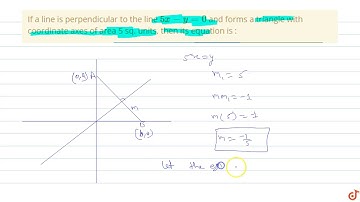 If a line is perpendicular to the line 5x - y = 0 and forms a triangle with
coordinate axes of area 5 sq. units, then its equation is :
5x = y
(0,a) A
m₁ = 5
m
mm₁ = -1
m(5) = -1
B
m = -1/5
Let the eqn